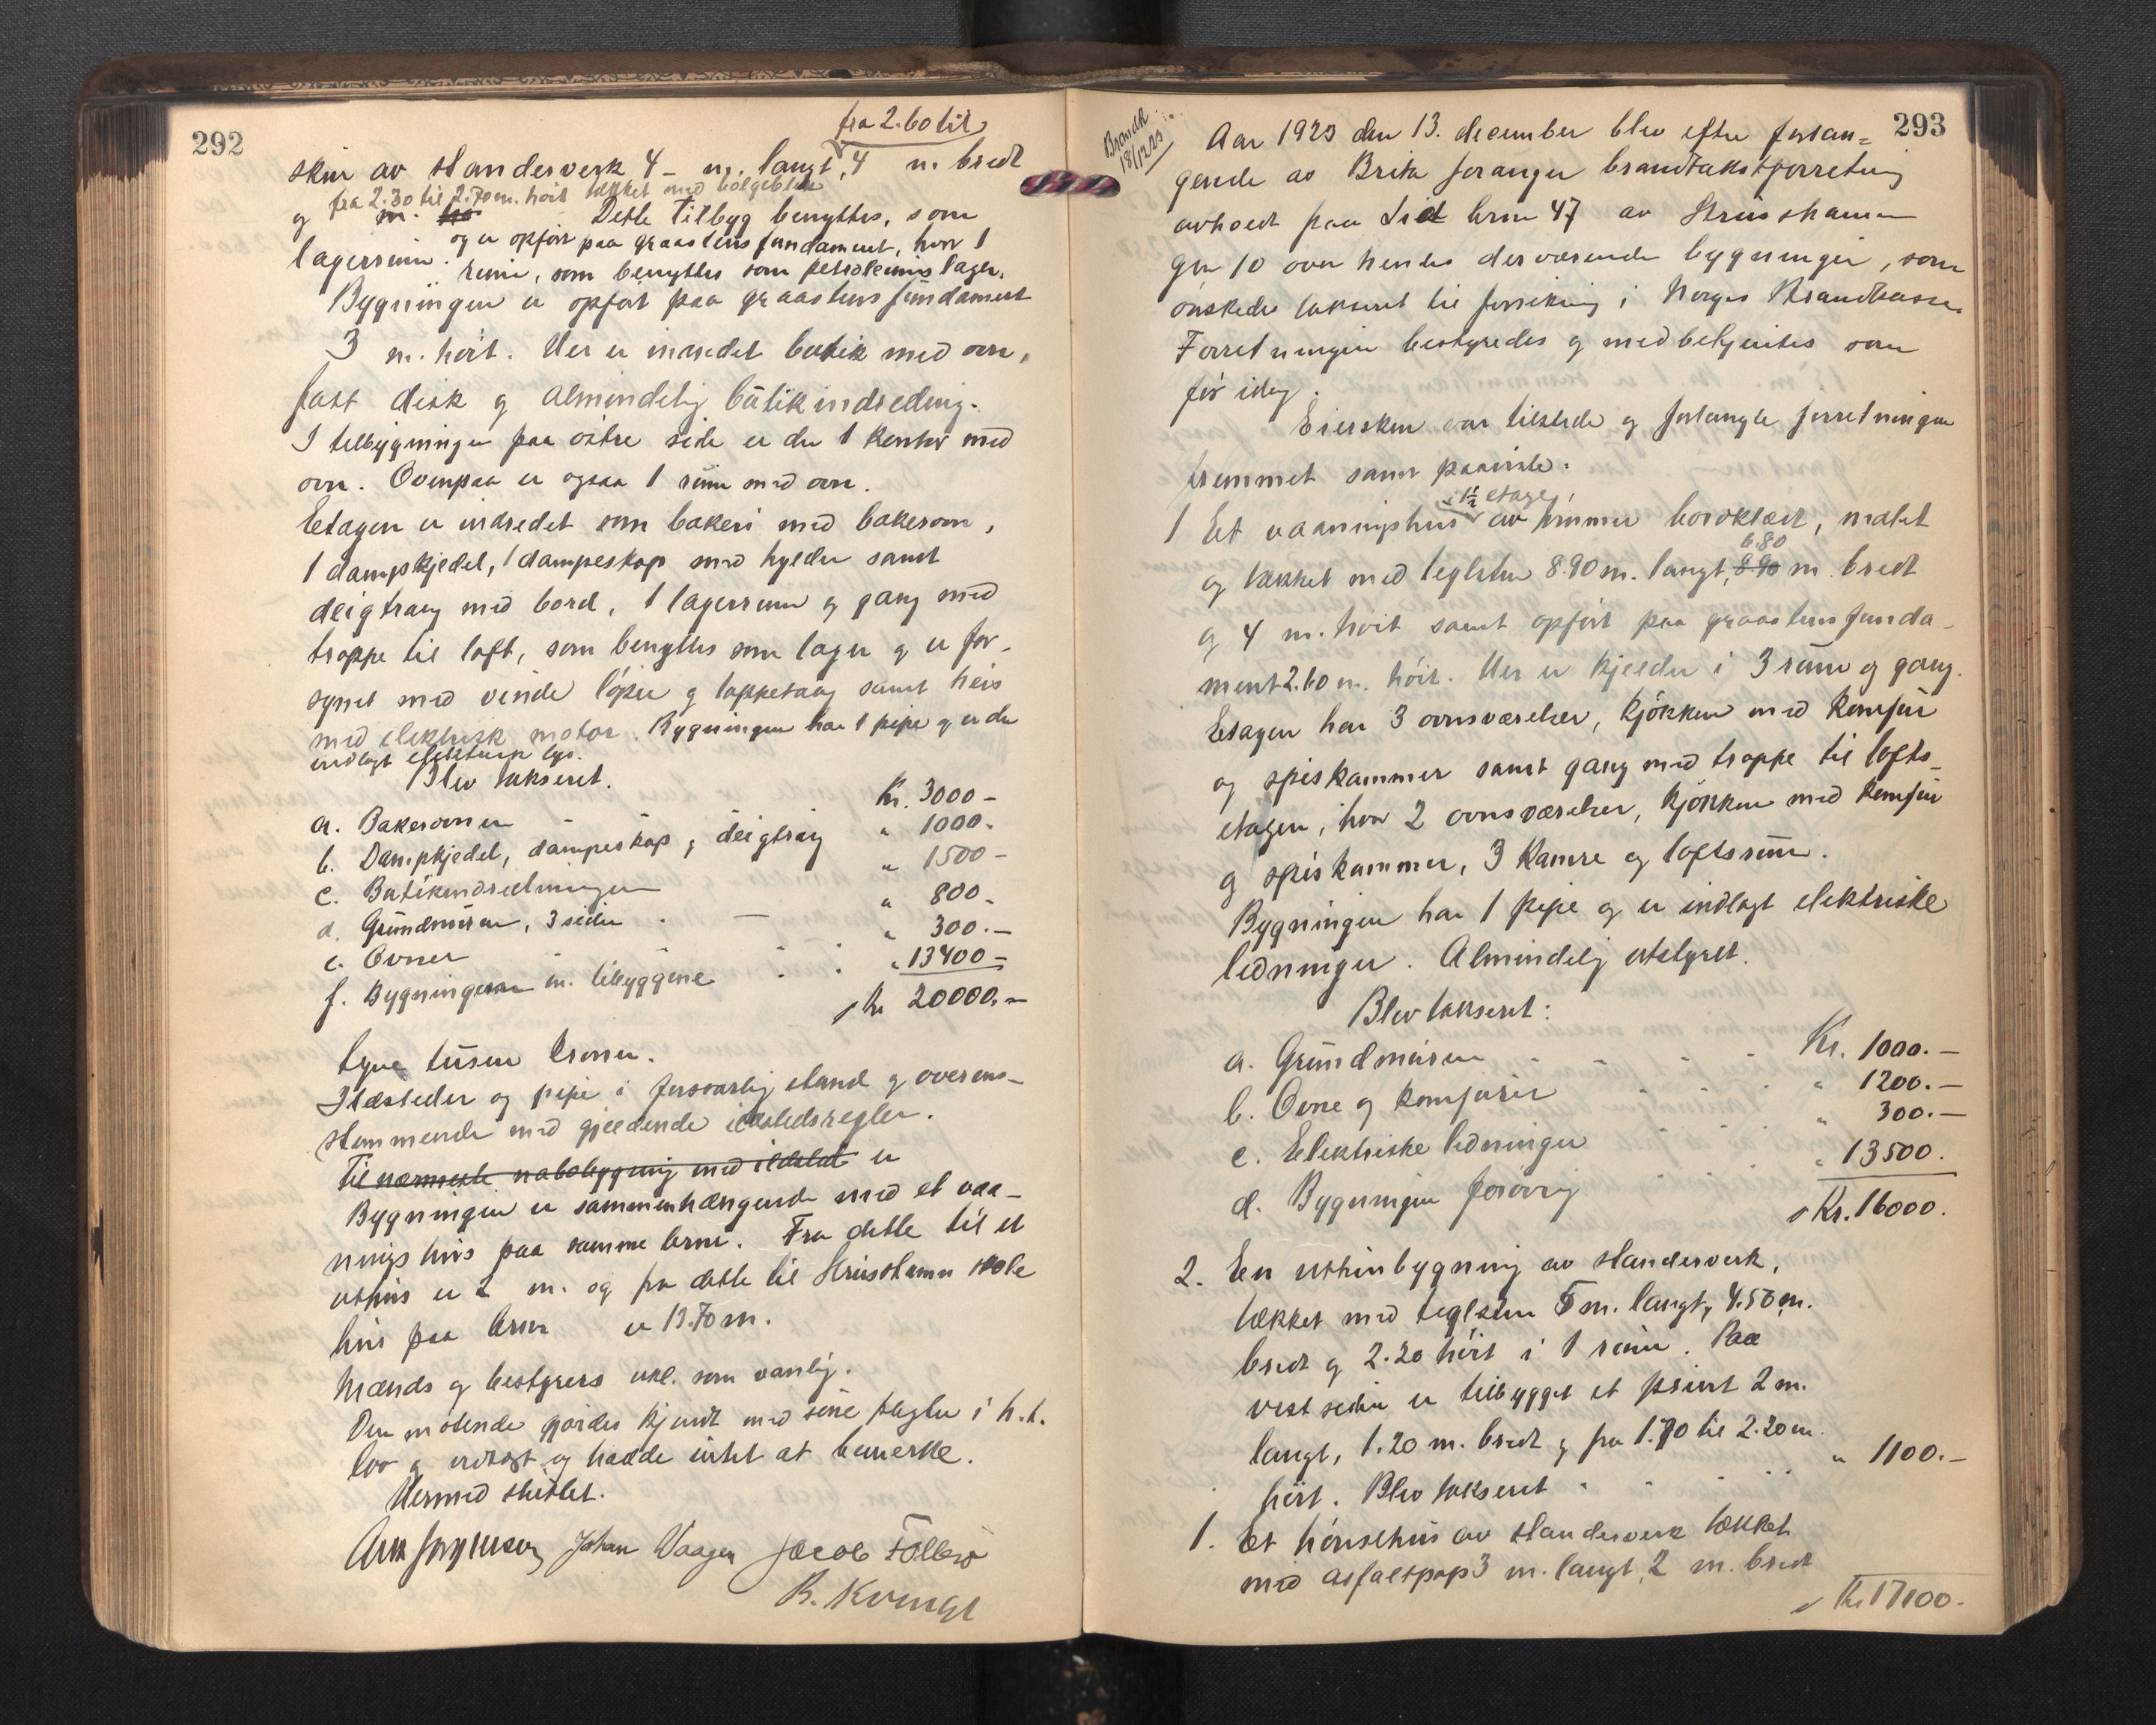 292
fra 2.60 til
skur av standerverk 4 - m. langt, 4 m. bredt
fra 2.30 til 2.70 m. høit tækket med bølgeblik
og m. Dette tilbyg benyttes, som
lagerrum. og er opført paa graastens fundament, hvor 1
rum, som benyttes som petroleumslager.
Bygningen er opført paa graastens fundament
3 m. høit. Her er inredet butik med ovn,
fast disk og almindelig butikindredning.
I tilbygningen paa østre side er der 1 kontor med
ovn. Ovenpaa er ogsaa 1 rum med ovn.
Etagen er indredet som bakeri med bakerovn,
1 dampkjedel, 1 dampeskap med hylder samt
deigtraug med bord, 1 lagerrum og gang med
trappe til loft, som benyttes som lager og er for-
synet med vinde løper og samt heis
med elektrisk motor. Bygningen har 1 pipe og er der
indlagt elektrisk lys.
Blev takseret.
a. Bakerovnen Kr. 3000 -
b. Dampkjedel, dampeskap, deigtraug " 1000 -
c. Butikindredningen " 1500 -
d. Grundmuren, 3 sider . — " 800 -
e. Ovner " 300. —
f. Bygningen m. tilbyggene " 13400 -
Kr 20000. -
tyve tusen kroner.
Ildsteder og pipe i forsvarlig stand og overens-
stemmende med gjældende ildstedsregler.
Til nærmeste nabobygning med ildsted er
Bygningen er sammenhængende med et vaa-
ningshus paa samme brnr. Fra dette til et
uthus er 2 m. og fra dette til Strusshamn skole
hus paa brnr er 13.70 m.
Mænds og bestyrers utl. som vanlig.
Den møtende gjordes kjendt med sine pligter i h.t.
lov og vedtægt og hadde intet at bemerke.
Hermed sluttet.
Johan Waagen Jacob Follesø
R. Kvingt
293
Brandk
18/12 23
Aar 1923 den 13. december blev efter forlan=
gende av Brita Joranger brandtakstforretning
avholdt paa Lid brnr 47 av Strusshamn
gnr 10 over hendes derværende bygninger, som
ønskedes takseret til forsikring i Norges Brandkasse.
Forretningen bestyredes og medbetjentes som
før idag.
Eiersken var tilstede og forlangte forretningen
fremmet samt paaviste:
1½ etage,
1 Et vaaningshus av tømmer bordklædt, malet
6.80
og tækket med teglsten 8.90 m. langt, 8.90 m bredt
og 4 m. høit samt opført paa graastensfunda-
ment 2.60 m. høit. Her er kjelder i 3 rum og gang.
Etagen har 3 ovnsværelser, kjøkken med komfur
og spiskammer samt gang med trappe til lofts-
etagen, hvor 2 ovnsværelser, kjøkken med komfur
og spiskammer, 3 kamre og loftsrum.
Bygningen har 1 pipe og er indlagt elektriske
ledninger. Almindelig utstyret.
Blev takseret:
a. Grundmuren - - - - Kr. 1000. —
b. Ovne og komfurer " 1200. —
c. Elektriske ledninger " 300. —
d. Bygningen forøvrig " 13500.
Kr. 16000.
2. En uthusbygning av standerverk,
tækket med teglsten 5 m. langt, 4.50 m.
bredt og 2.20 høit i 1 rum. Paa
vestsiden er tilbygget et privet 2 m.
langt, 1.20 m. bredt og fra 1.70 til 2.20 m.
høit. Blev takseret - - - " 1100. —
1. Et hønsehus av standerverk tækket
med asfaltpap 3 m. langt, 2 m. bredt
Kr 17100.-